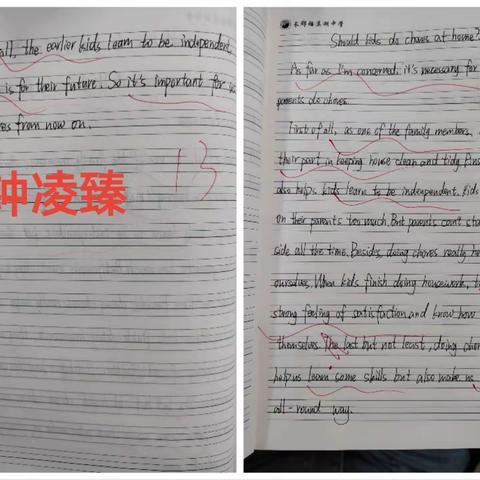 all, the earlier kids learn to be independent,
is for their future. So it's important for us
from now on.
13
钟凌臻
Should kids do chores at home?
As far as I'm concerned, it's necessary for
parents do chores.
First of all, as one of the family members,
their part in keeping house clean and tidy.
also helps kids learn to be independent. Kids
on their parents too much. But parents can't
side all the time. Besides, doing chores really
ourselves. When kids finish doing housework,
strong feeling of satisfaction and know how
themselves. The last but not least, doing
help us learn some skills but also make us
all-round way.